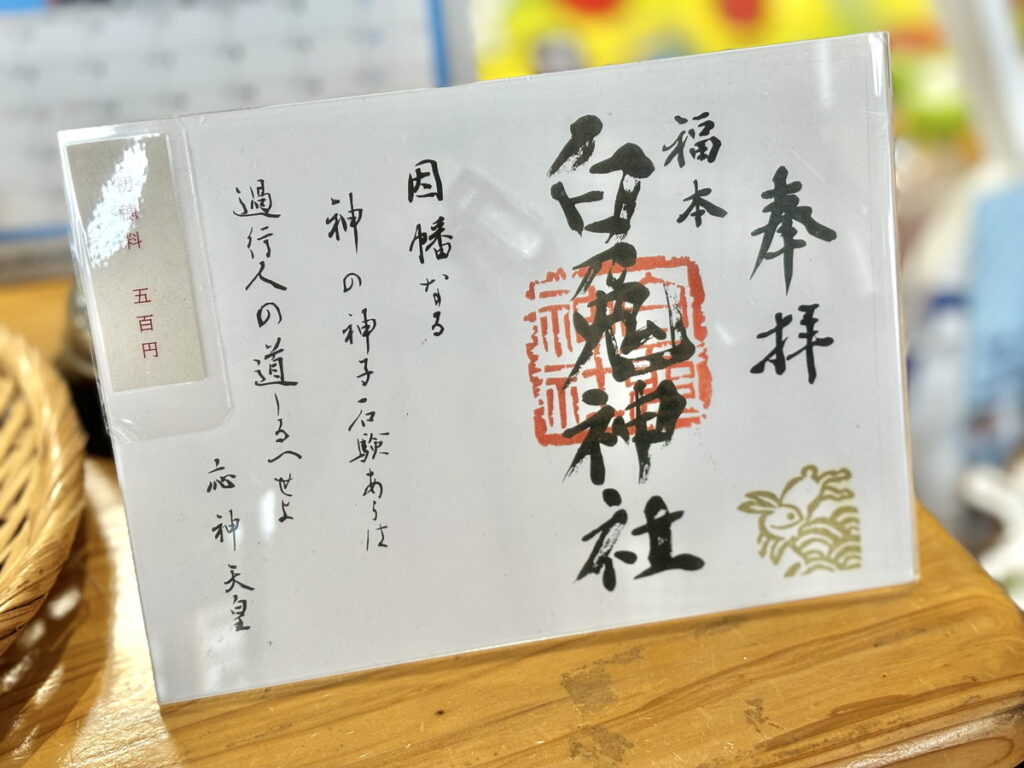 奉拝
福本
白兎神社
因幡なる
神の神子石験あらは
過行人の道しるへせよ
応神天皇
料 五百円